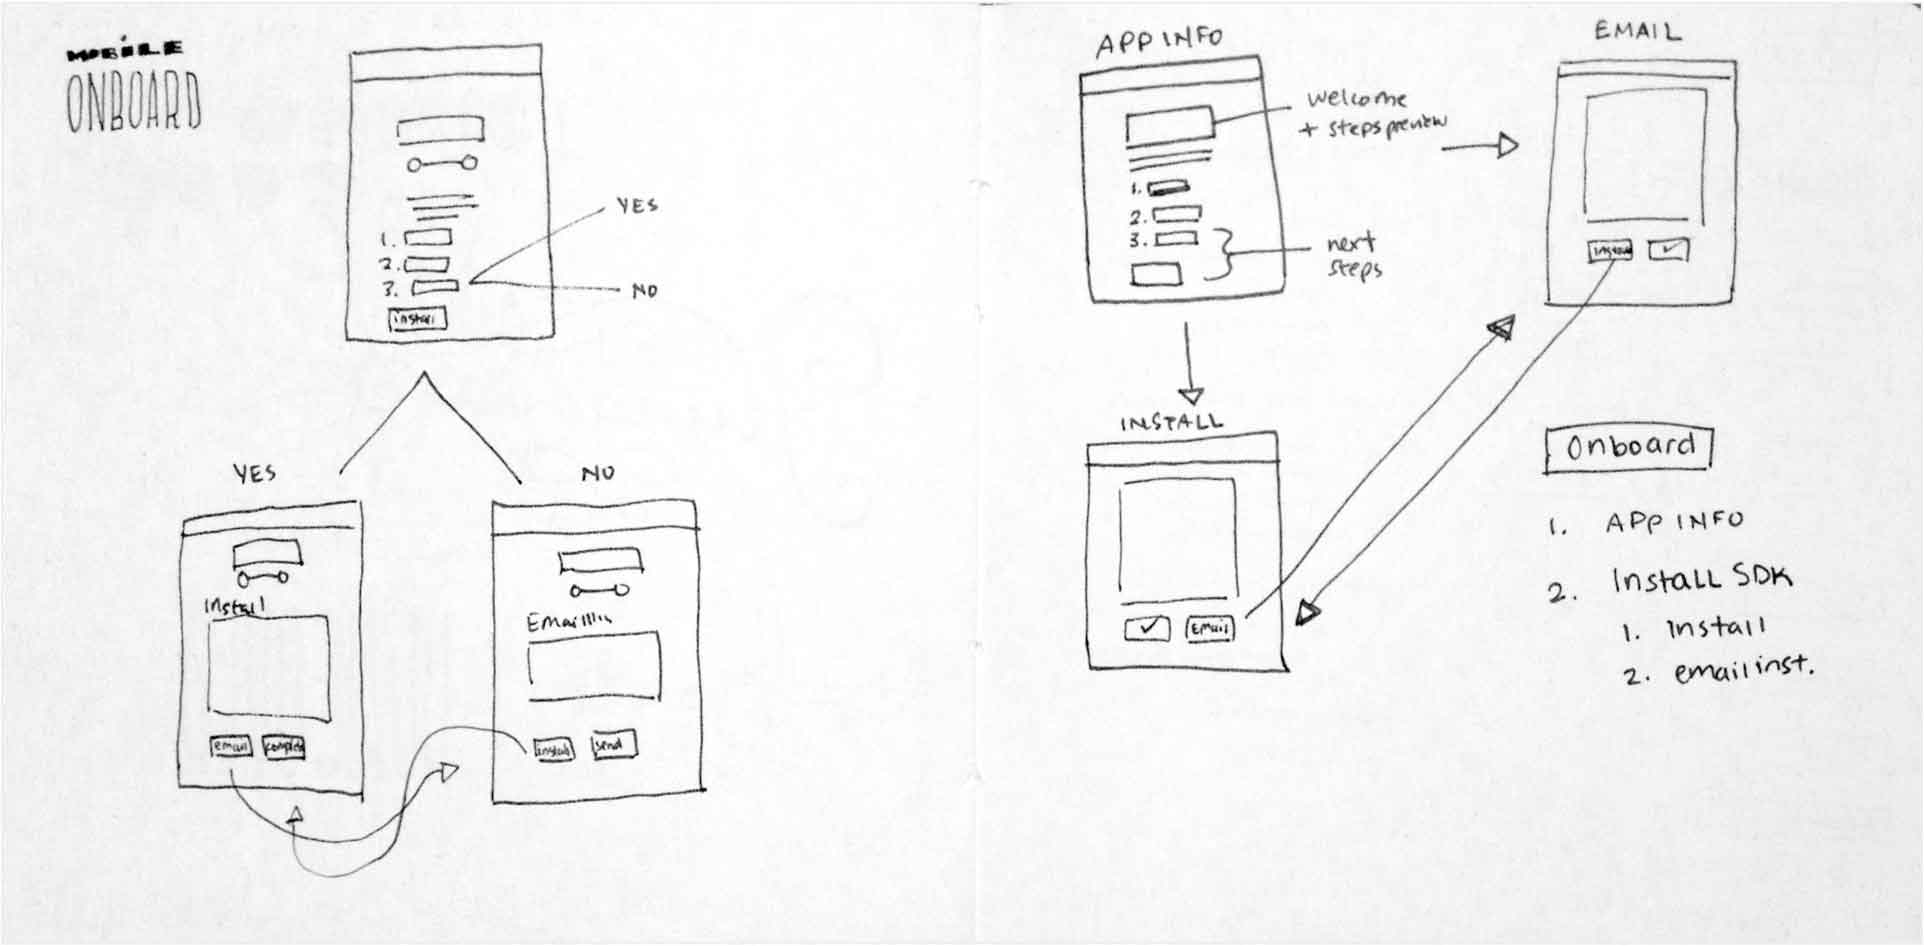 MOBILE
ONBOARD
1.
2.
3.
install
YES
NO
YES
NO
Install
email
complete
install
send
APP INFO
welcome
+ steps preview
1.
2.
3.
next
steps
EMAIL
install
INSTALL
EMail
Onboard
1. APP INFO
2. Install SDK
1. install
2. email inst.